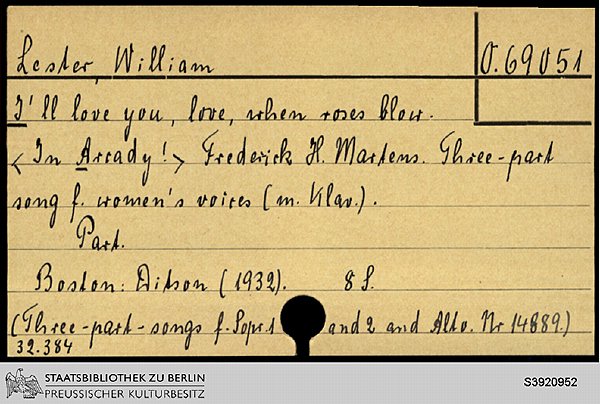 Lester, William O.69051
I'll love you, love, when roses blow.
<In Arcady!> Frederick H. Martens. Three-part
song f. women's voices (m. Klav.).
Part.
Boston: Ditson (1932). 8 S.
(Three-part-songs f. Sopr. 1 and 2 and Alto. Nr 14889.)
32.384
STAATSBIBLIOTHEK ZU BERLIN
PREUSSISCHER KULTURBESITZ
S3920952